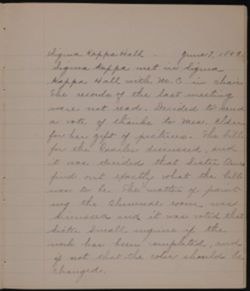 Sigma Kappa Hall - June 7, 1902.
Sigma Kappa met in Sigma
Kappa Hall with M. C. in chair
The records of the last meeting
were not read. Decided to send
a vote of thanks to Mrs. Elder
for her gift of pictures. The bills
for the discussed, and
it was decided that Sister
find out exactly what the bills
was to be. The matter of paint
ing the room was
discussed and it was voted that
Sister Small inquire if the
work has been completed, and
if not that the color should be
changed.